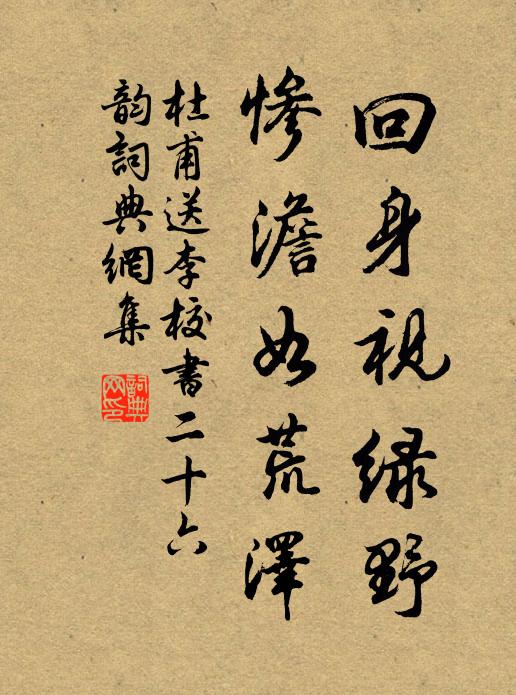 回身視綠野
慘澹如荒澤
杜甫送李校書二十六
韵詞典網集
詞典
网印